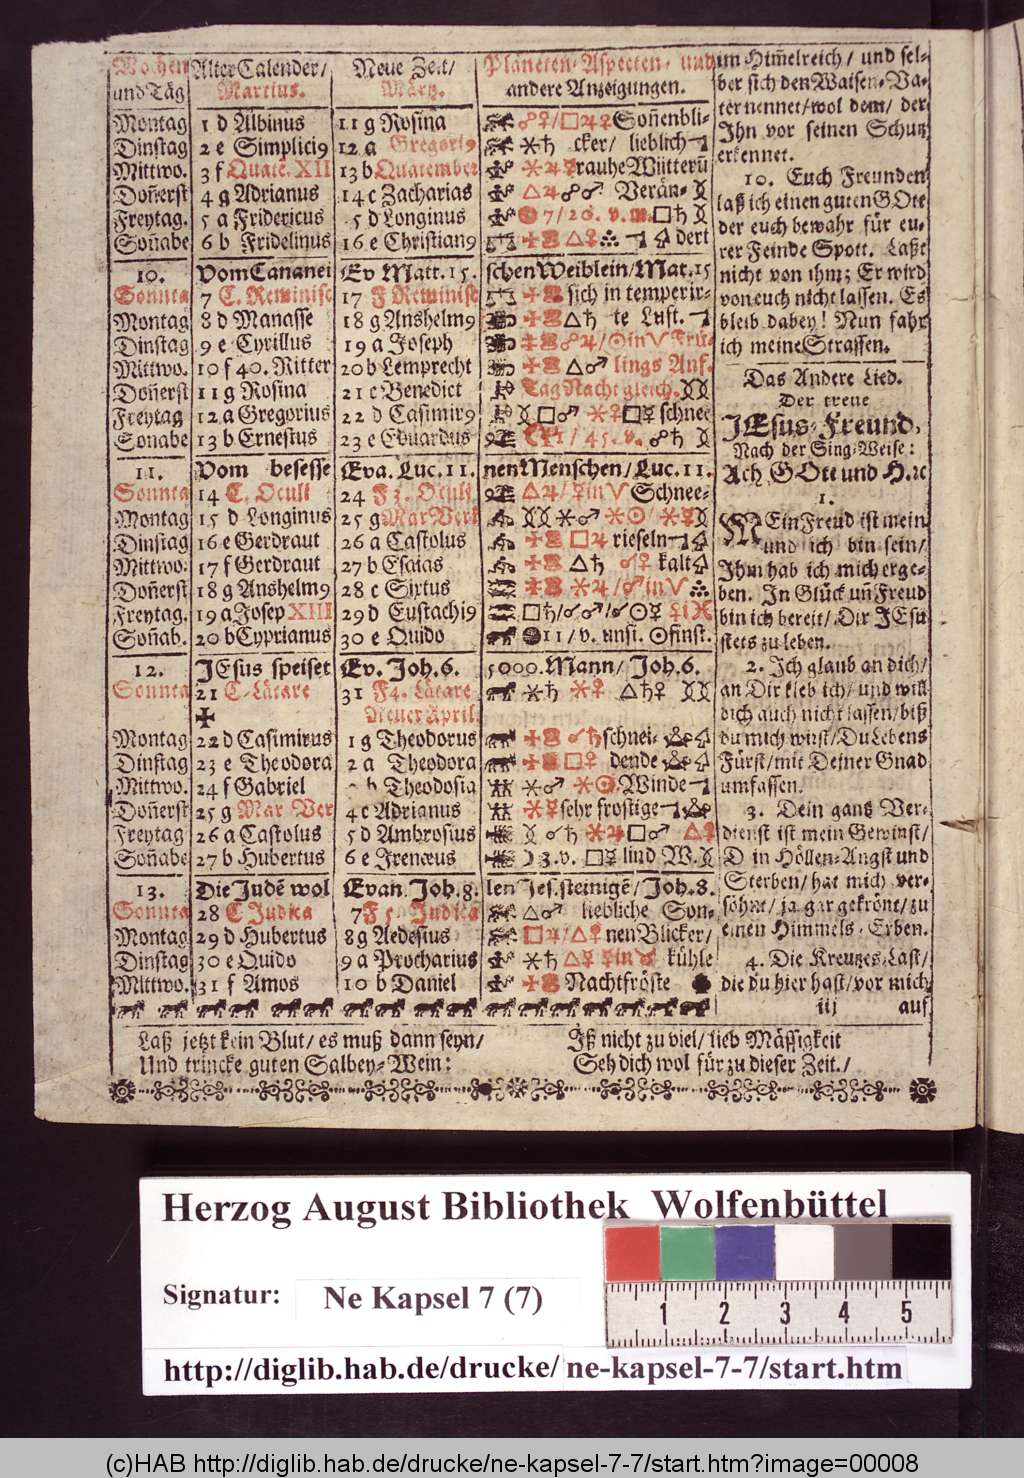 Wochen Alter Calender/ Neue Zeit/ Planeten-Aspecten- und
und Täg Martius. Märtz. andere Anzeigungen.
Montag 1 d Albinus 11 g Rosina ☍♀/□♃♀ Soñenbli-
Dinstag 2 e Simplici9 12 a Gregori9 ⚹♄ cker/ lieblich
Mittwo. 3 f Quate. XII 13 b Quatember ⚹♃☿ rauhe Witterũ
Doñerst 4 g Adrianus 14 c Zacharias △♃☍♂ Verän-
Freytag. 5 a Fridericus 5 d Longinus 7/26. v. m. □♄
Soñabe 6 b Fridelinus 16 e Christian9 △♀ dert
10. Vom Cananei Ev Matt. 15. schen Weiblein/ Mat. 15
Sonnta 7 C. Reminisc 17 F Reminisc sich in temperir-
Montag 8 d Manasse 18 g Anshelm9 △♄ te Lust.
Dinstag 9 e Cyrillus 19 a Joseph ☍♃/☉in♈ Frü-
Mittwo. 10 f 40. Ritter 20 b Lemprecht △♂ lings Anf.
Doñerst 11 g Rosina 21 c Benedict Tag Nacht gleich.
Freytag 12 a Gregorius 22 d Casimir9 □♂ ⚹♀□☿ schnee
Sonabe 13 b Ernestus 23 e Eduardus 1/45. v. ☍♄
11. Vom besesse Eva. Luc. 11. nen Menschen/ Luc. 11.
Sonnta 14 C. Oculi 24 F 3. Oculi. △♃/☿in♈ Schnee-
Montag 15 d Longinus 25 g Mar Verk ⚹♂ ⚹☉/⚹☿
Dinstag 16 e Gerdraut 26 a Castolus □♃ rieseln
Mittwo: 17 f Gerdraut 27 b Esaias △♄ ☌♀ kalt
Doñerst 18 g Anshelm9 28 c Sixtus ⚹♃/♂in♈
Freytag. 19 a Josep XIII 29 d Eustachi9 □♄/☌♂/☌☉☿ ♀i♓
Soñab. 20 b Cyprianus 30 e Quido 11/v. unst. ☉finst.
12. JEsus speiset Ev. Joh. 6. 5000. Mann/ Joh. 6.
Sonnta 21 C-Lätare 31 F 4. Lätare ⚹♄ ⚹♀ △♄♀
✠ Neuer April.
Montag 22 d Casimirus 1 g Theodorus ☌♄ schnei-
Dinstag 23 e Theodora 2 a Theodora □♀ dende
Mittwo. 24 f Gabriel b Theodosia ⚹♂ ⚹☉. Winde
Doñerst 25 g Mar Ver 4 c Adrianus ⚹☿ sehr frostige
Freytag 26 a Castolus 5 d Ambrosius ☌♄ ⚹♃□♂ △☿
Soñabe 27 b Hubertus 6 e Irenæus 3. v. □☿ lind W.
13. Die Judē wol Evan. Joh. 8. len Jes. steinigē/ Joh. 8.
Sonnta 28 C Judica 7 F 5. Judica △♂ liebliche Son-
Montag 29 d Hubertus 8 g Aedesius □♃/△♀ nen Blicker/
Dinstag 30 e Quido 9 a Procharius ⚹♄ △☿ ♀in♉ kühle
Mittwo. 31 f Amos 10 b Daniel Nachtfröste
Laß jetzt kein Blut/ es muß dann seyn/
Und trincke guten Salbey-Wein:
Iß nicht zu viel/ lieb Mässigkeit
Seh dich wol für zu dieser Zeit./
im Him̃elreich/ und sel-
ber sich den Waisen-Va-
ter nennet/ wol dem/ der
Ihn vor seinen Schutz
erkennet.
10. Euch Freunden
laß ich einen guten GOtt
der euch bewahr für eu-
rer Feinde Spott. Laßt
nicht von ihm; Er wird
von euch nicht lassen. Es
bleib dabey! Nun fahr
ich meine Strassen.
Das Andere Lied.
Der treue
JEsus-Freund,
Nach der Sing-Weise:
Ach GOtt und H. ꝛc
1.
MEin Freud ist mein
und ich bin sein/
Ihm hab ich mich erge-
ben. In Glück uñ Freud
bin ich bereit/ Dir JEsu
stets zu leben.
2. Ich glaub an dich/
an Dir kleb ich/ und will
dich auch nicht lassen/ biß
du mich wirst/ Du Lebens
Fürst/ mit Deiner Gnad
umfassen.
3. Dein gantz Ver-
dienst ist mein Gewinst/
D in Höllen-Angst und
Sterben/ hat mich ver-
söhnt/ ja gar gekrönt/ zu
einen Himmels-Erben.
4. Die Kreutzes-Last/
die du hier hast/ vor mich
iij auf
Herzog August Bibliothek Wolfenbüttel
Signatur: Ne Kapsel 7 (7)
1 2 3 4 5
http://diglib.hab.de/drucke/ne-kapsel-7-7/start.htm
(c)HAB http://diglib.hab.de/drucke/ne-kapsel-7-7/start.htm?image=00008